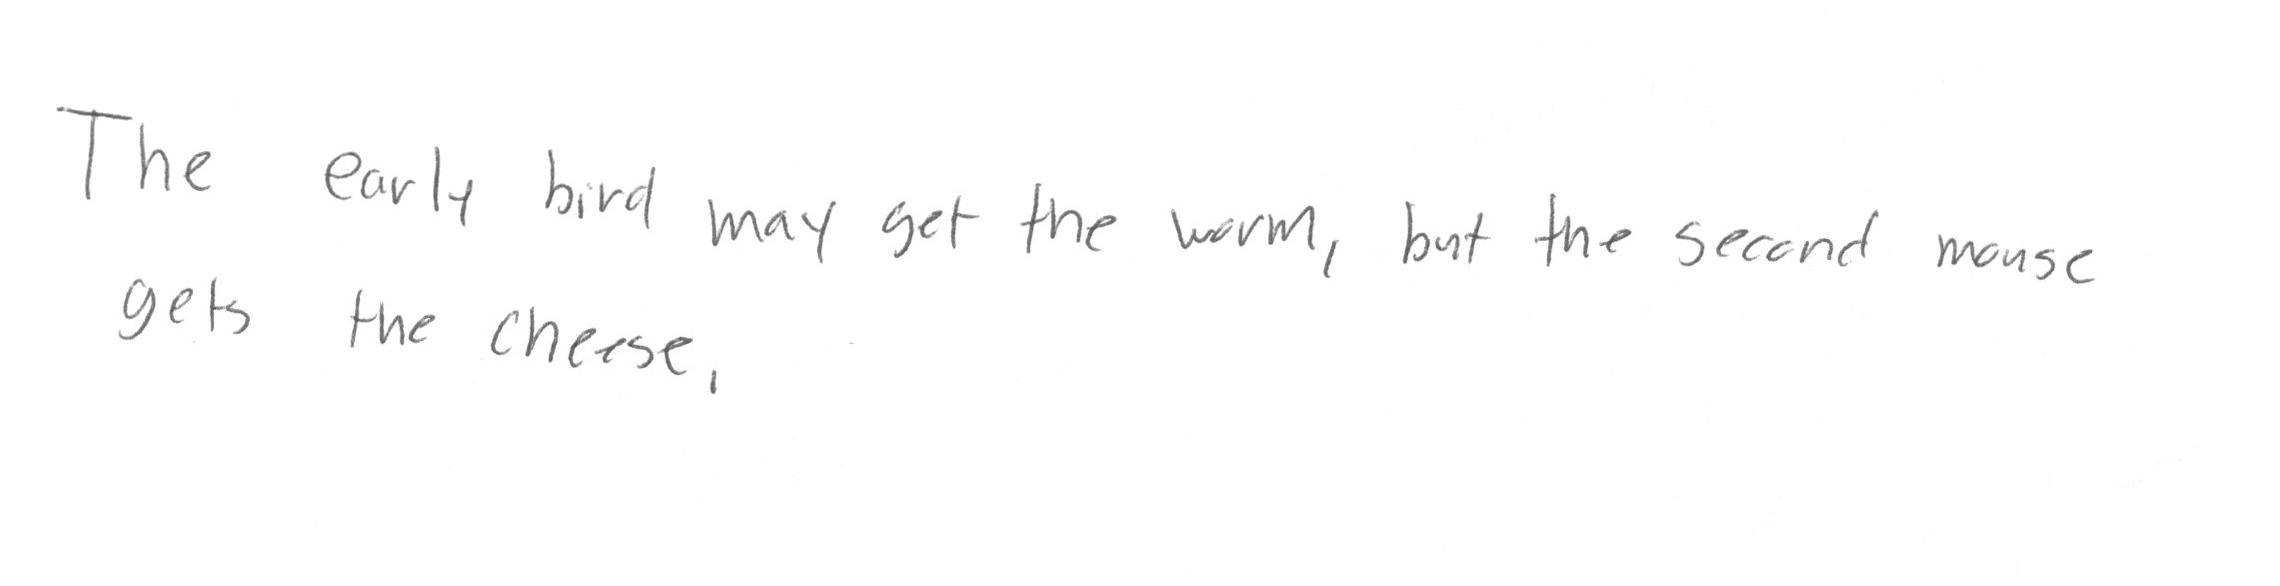 The early bird may get the worm, but the second mouse
gets the cheese,